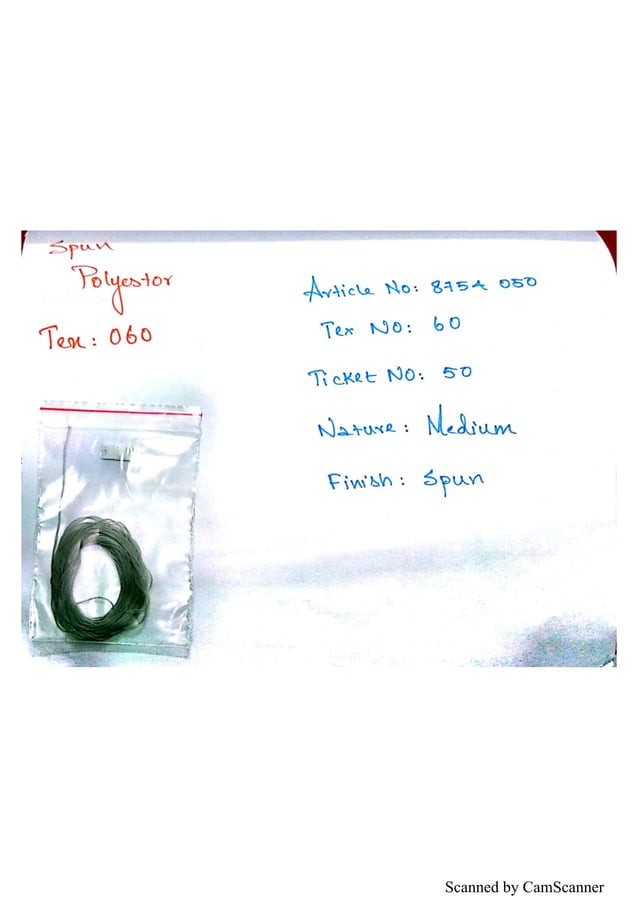 Spun
Polyestor
Tex: 060
Article No: 8754 050
Tex NO: 60
Ticket NO: 50
Nature: Medium
Finish: Spun
Scanned by CamScanner